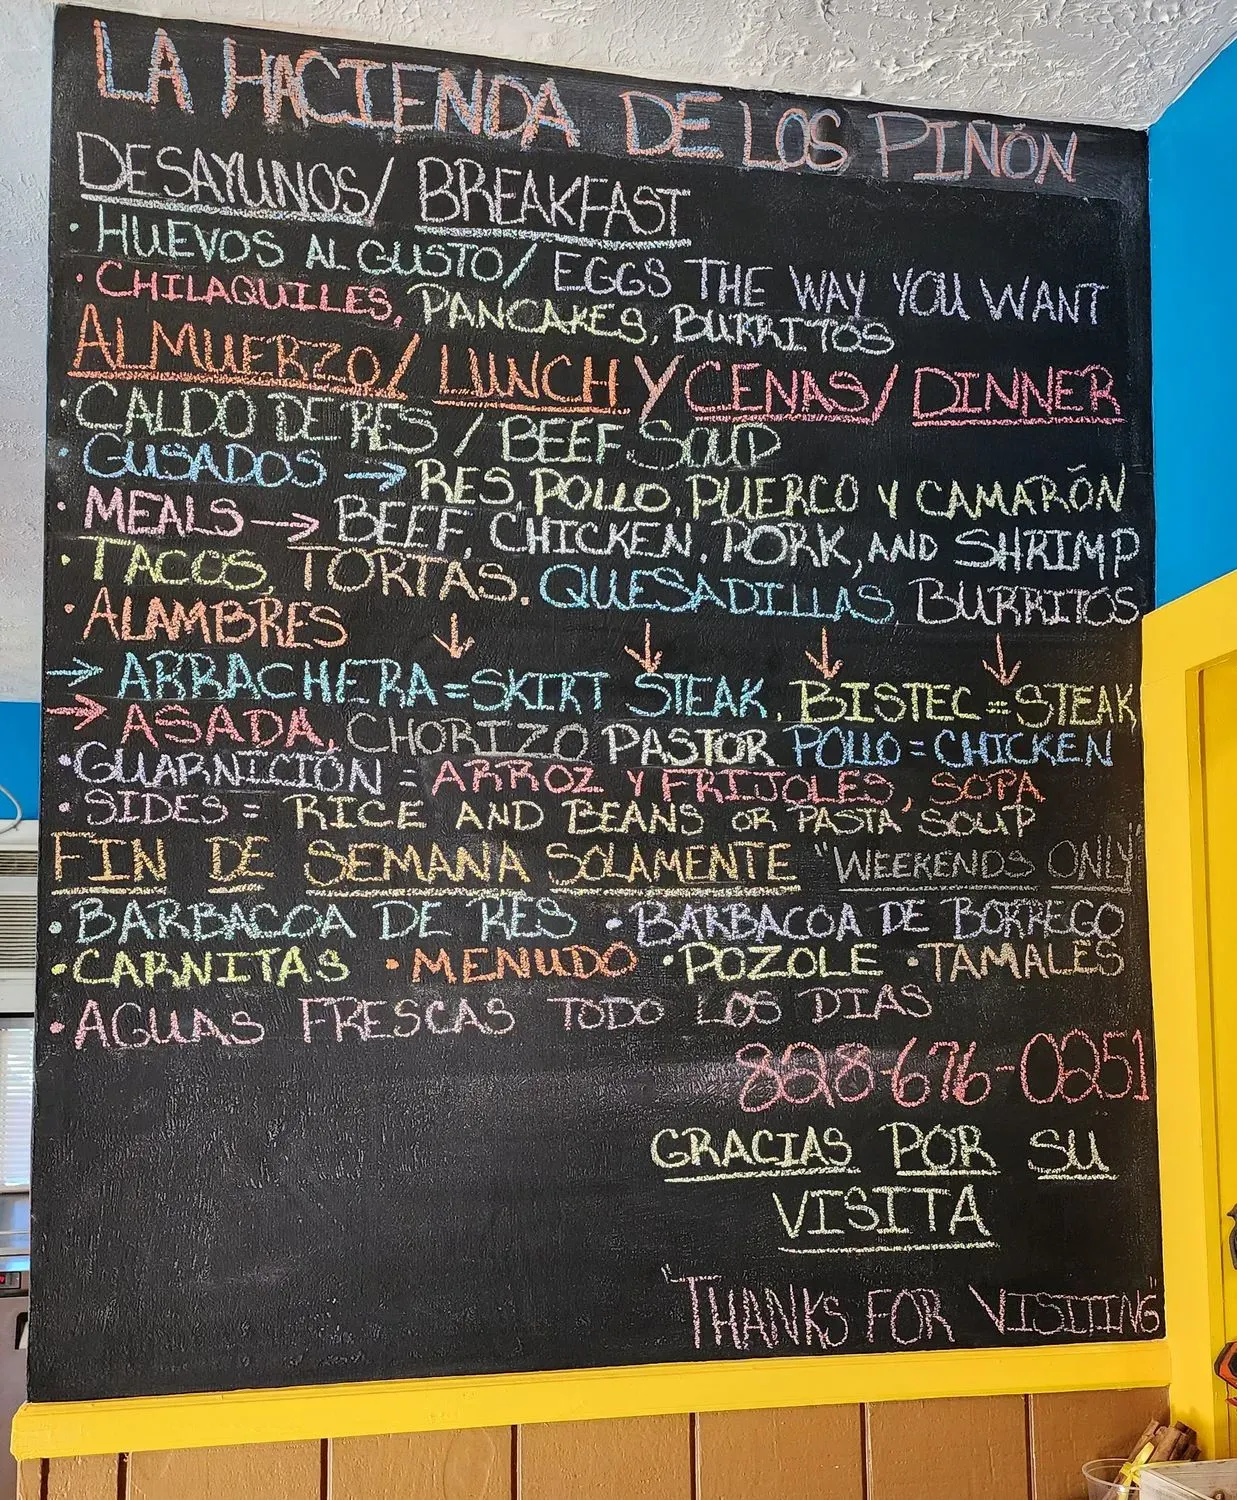 LA HACIENDA DE LOS PIÑÓN
DESAYUNOS/ BREAKFAST
• HUEVOS AL GUSTO/ EGGS THE WAY YOU WANT
• CHILAQUILES, PANCAKES, BURRITOS
ALMUERZO/ LUNCH Y CENAS/ DINNER
• CALDO DE RES / BEEF SOUP
• GUSADOS → RES, POLLO, PUERCO Y CAMARÓN
• MEALS → BEEF, CHICKEN, PORK, AND SHRIMP
• TACOS, TORTAS, QUESADILLAS BURRITOS
• ALAMBRES ↓ ↓ ↓ ↓
→ ARRACHERA = SKIRT STEAK, BISTEC = STEAK
→ ASADA, CHORIZO PASTOR POLLO = CHICKEN
• GUARNICIÓN = ARROZ Y FRIJOLES, SOPA
• SIDES = RICE AND BEANS OR PASTA SOUP
FIN DE SEMANA SOLAMENTE "WEEKENDS ONLY"
• BARBACOA DE RES • BARBACOA DE BORREGO
• CARNITAS • MENUDO • POZOLE • TAMALES
• AGUAS FRESCAS TODO LOS DIAS
828-676-0251
GRACIAS POR SU
VISITA
"THANKS FOR VISITING"